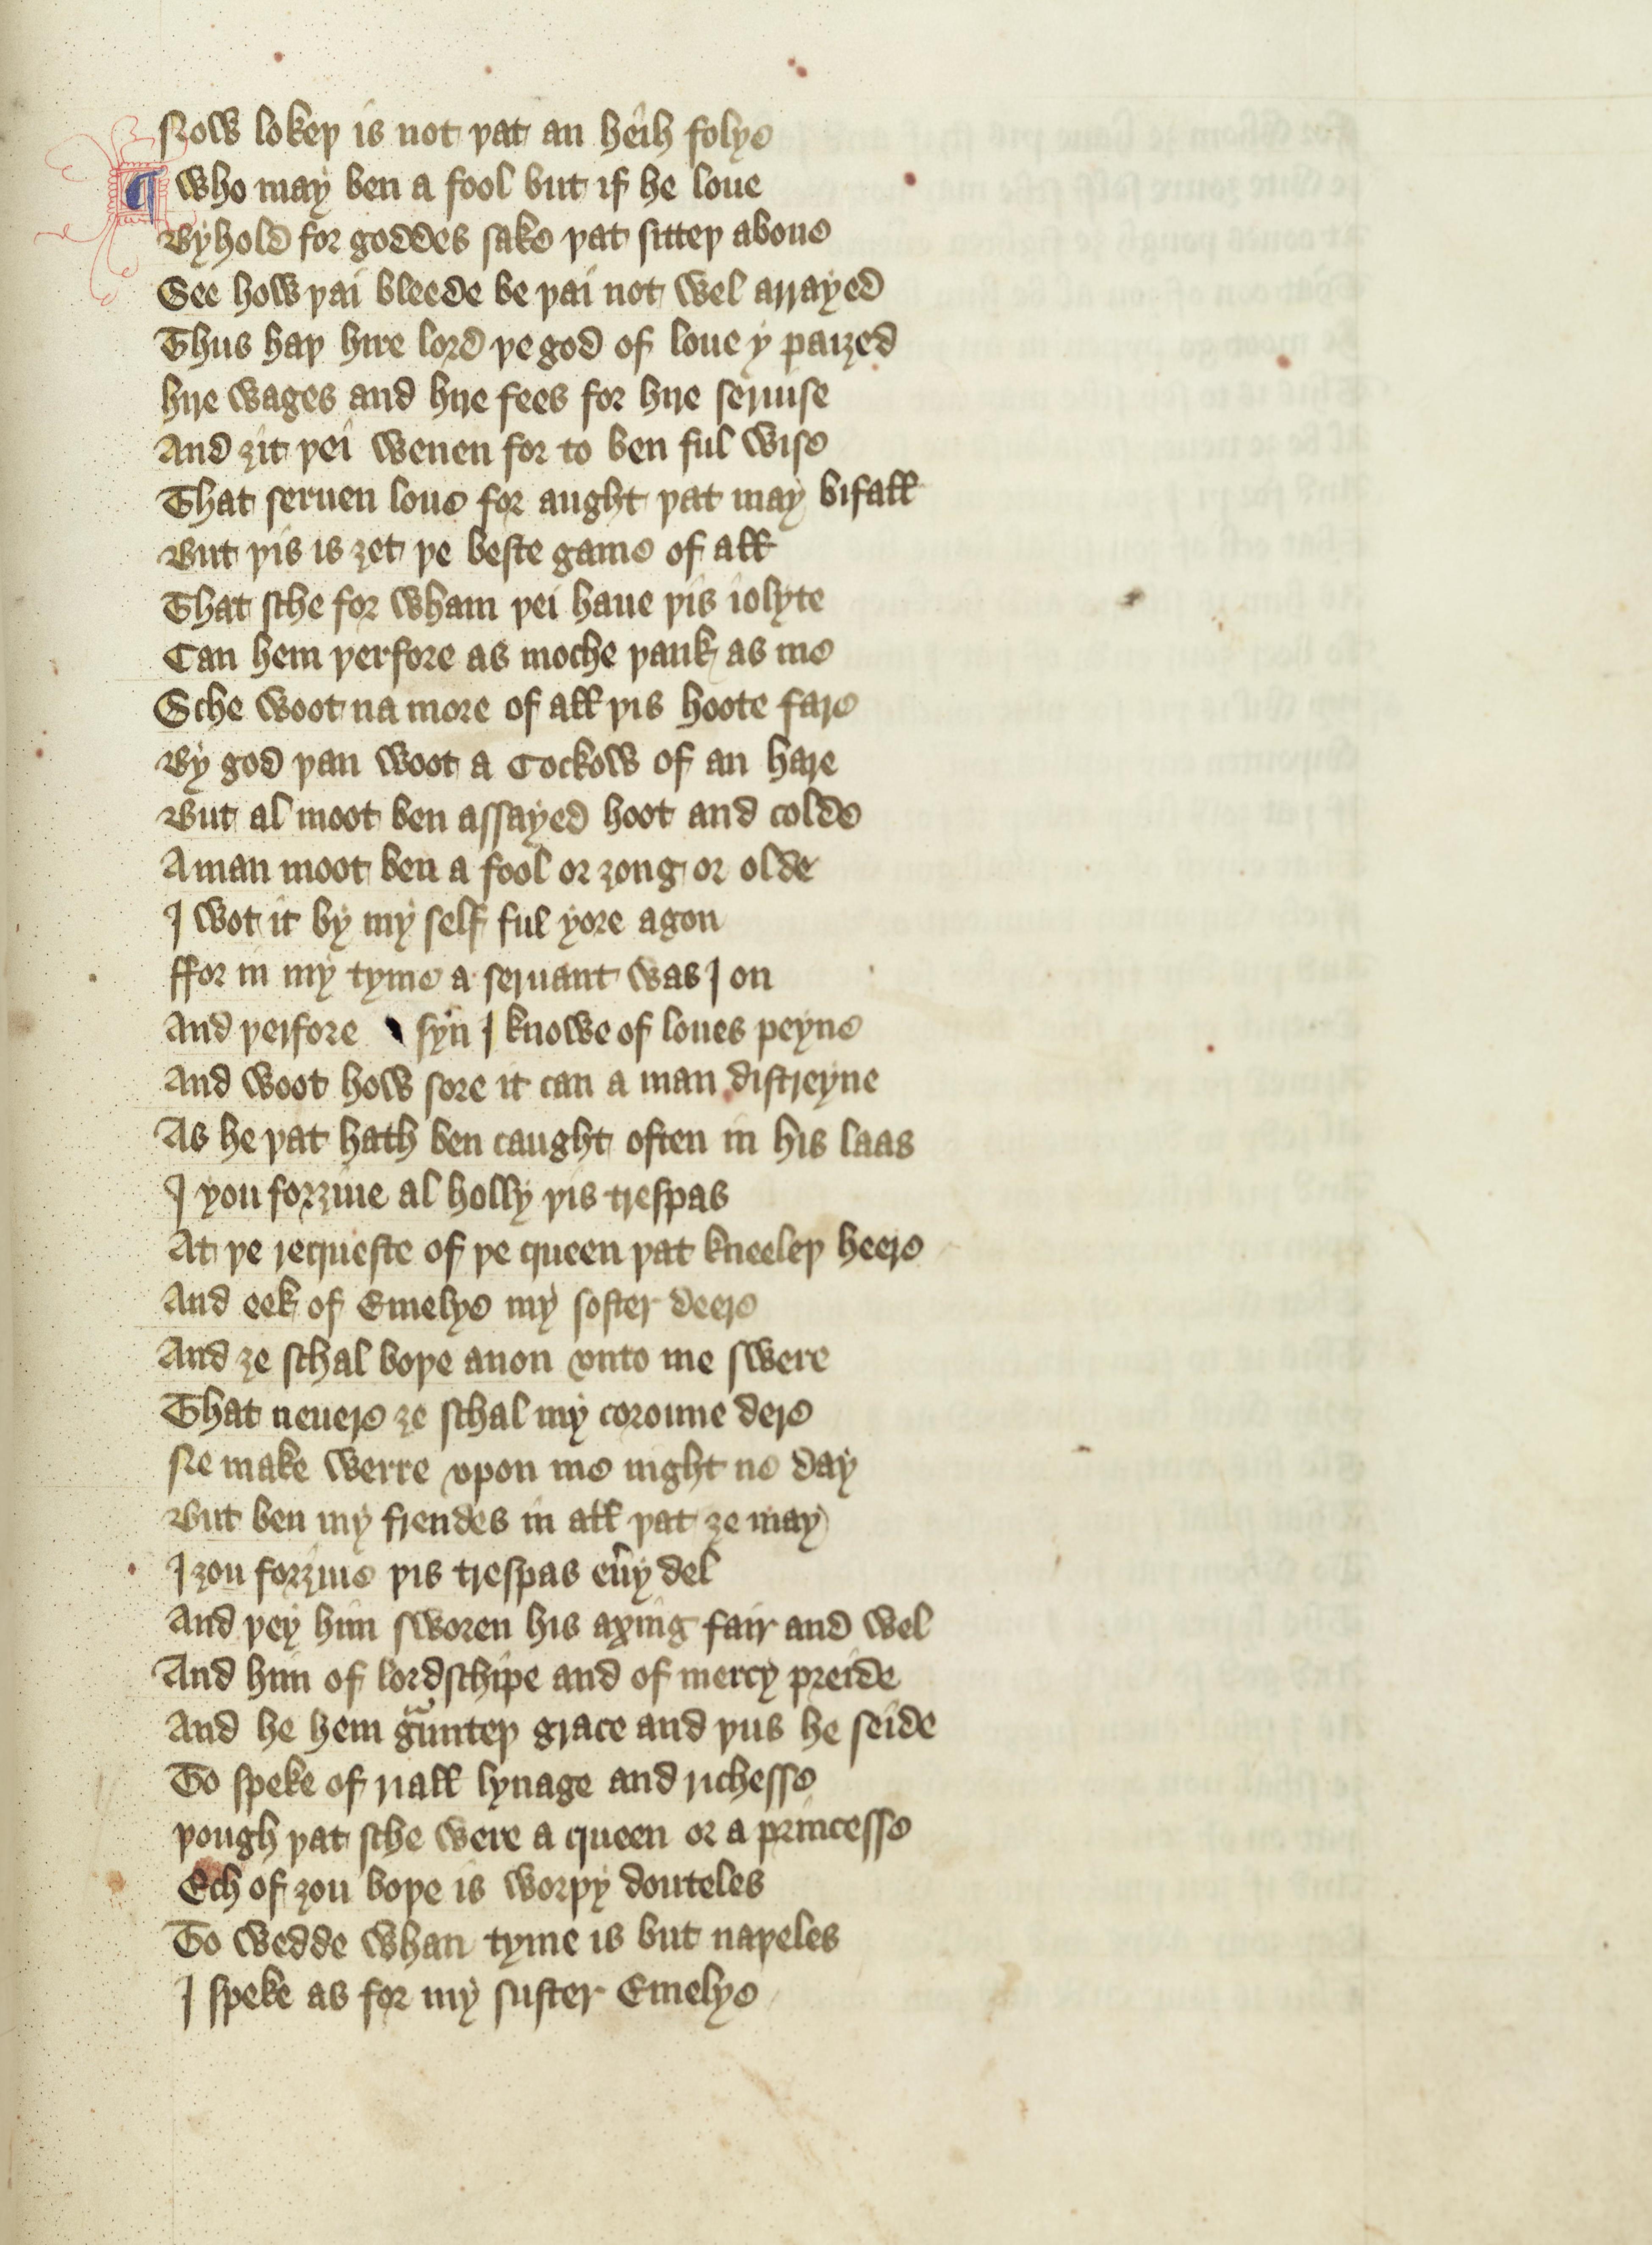 Now lokeþ is not þat an heih folye
¶ Who may ben a fool but if he loue
Byhold for goddes sake þat sitteþ aboue
See how þai bleede be þai not wel arrayed
Thus haþ hire lord þe god of loue y paiȝed
hire wages and hire fees for hire seruise
And ȝit þei wenen for to ben ful wise
That seruen loue for aught þat may bifall
But þis is ȝet þe beste game of all
That sche for wham þei haue þis iolyte
Can hem þerfore as moche þank as me
Sche woot na more of all þis hoote fare
By god þan woot a Cockow of an hare
But al moot ben assayed hoot and colde
A man moot ben a fool or ȝong or olde
I wot it by my self ful yore agon
ffor in my tyme a seruant was I on
And þerfore syn I knowe of loues peyne
And woot how sore it can a man distreyne
As he þat hath ben caught often in his laas
I you forȝiue al holly þis trespas
At þe requeste of þe queen þat kneeleþ heere
And eek of Emelye my soster deere
And ȝe schal boþe anon vnto me swere
That neuere ȝe schal my coroune dere
Ne make werre vpon me night ne day
But ben my frendes in all þat ȝe may
I ȝou forȝiue þis trespas eu̅y del
And þey him sworen his axing fair and wel
And him of lordschipe and of mercy preide
And he hem gᵃunteþ grace and þus he seide
To speke of riall lynage and richesse
þough þat sche were a queen or a princesse
Ech of ȝou boþe is worþy douteles
To wedde whan tyme is but naþeles
I speke as for my suster Emelye